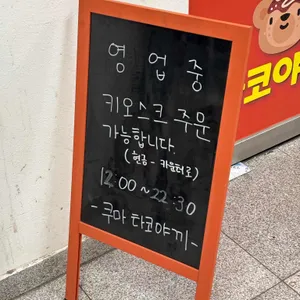 영 업 중
키오스크 주문
가능합니다.
(현금 - 카운터로)
12:00~22:30
- 쿠마 타코야끼 -
코야